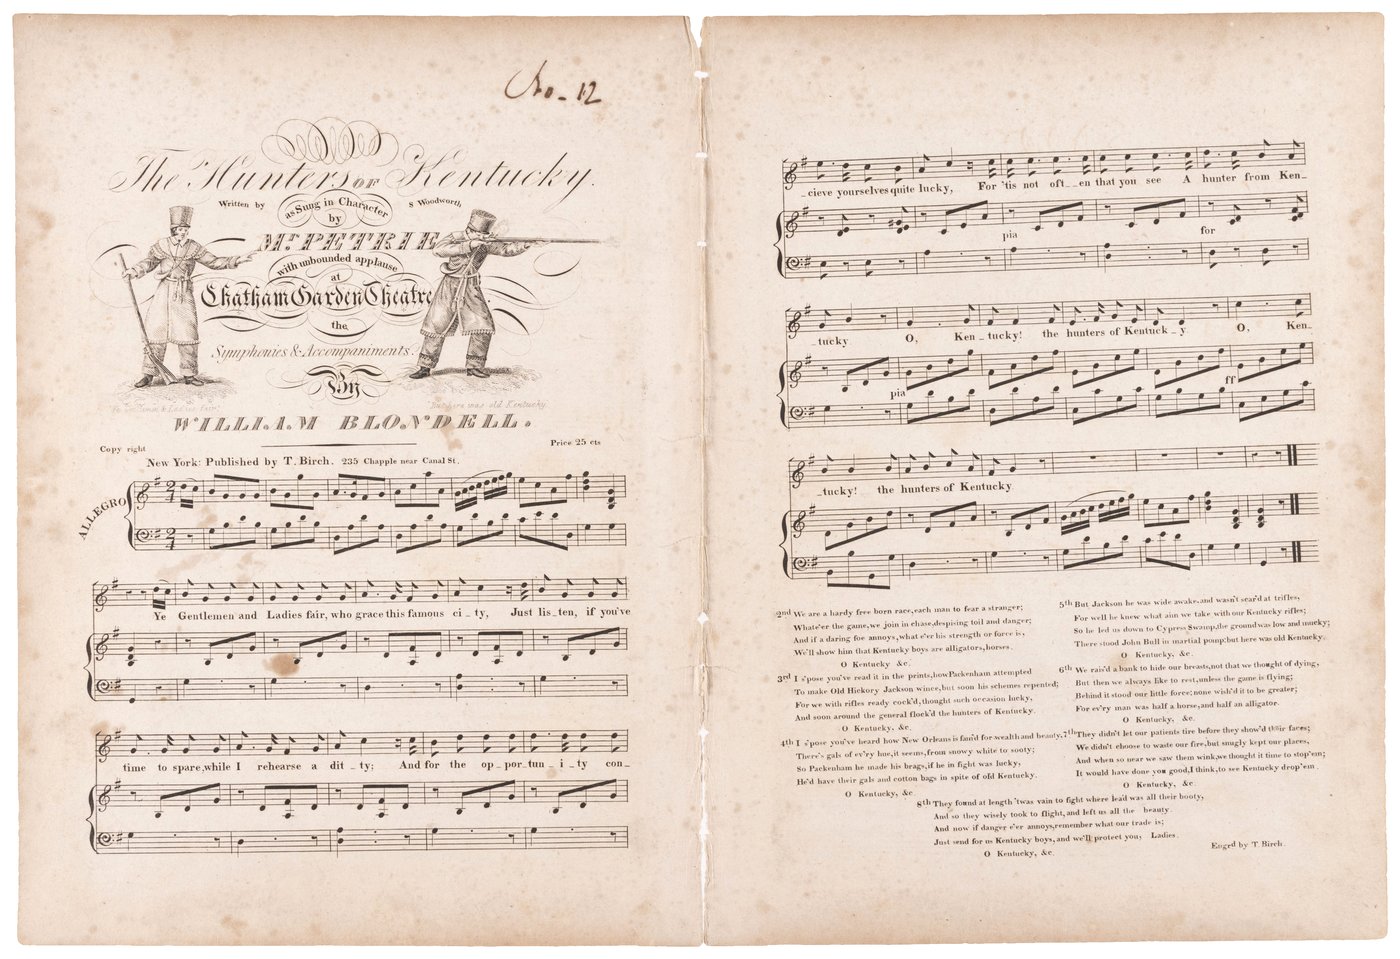 No. 12
The Hunters OF Kentucky.
Written by
as Sung in Character
S Woodworth
by
Mr. PETRIE
with unbounded applause
at
Chatham Garden Theatre
the
Symphonies & Accompaniments.
By
Ye Gentlemen & Ladies fair,
But here was old Kentucky
WILLIAM BLONDELL.
Copy right
Price 25 cts
New York: Published by T. Birch. 235 Chapple near Canal St.
ALLEGRO
Ye Gentlemen and Ladies fair, who grace this famous ci_ty, Just lis_ten, if you've
time to spare, while I rehearse a dit_ty; And for the op_por_tun_i_ty con_
_cieve yourselves quite lucky, For 'tis not oft_en that you see A hunter from Ken_
pia for
_tucky. O, Ken_tucky! the hunters of Kentuck_y. O, Ken_
pia ff
_tucky! the hunters of Kentucky
2nd We are a hardy free born race, each man to fear a stranger;
Whate'er the game, we join in chase, despising toil and danger;
And if a daring foe annoys, what e'er his strength or force is,
We'll show him that Kentucky boys are alligators, horses.
O Kentucky &c.
3rd I s'pose you've read it in the prints, how Packenham attempted
To make Old Hickory Jackson wince, but soon his schemes repented;
For we with rifles ready cock'd, thought such occasion lucky,
And soon around the general flock'd the hunters of Kentucky.
O Kentucky, &c.
4th I s'pose you've heard how New Orleans is fam'd for wealth and beauty,
There's gals of ev'ry hue, it seems, from snowy white to sooty;
So Packenham he made his brags, if he in fight was lucky,
He'd have their gals and cotton bags in spite of old Kentucky.
O Kentucky, &c.
5th But Jackson he was wide awake, and wasn't scar'd at trifles,
For well he knew what aim we take with our Kentucky rifles;
So he led us down to Cypress Swamp, the ground was low and mucky;
There stood John Bull in martial pomp: but here was old Kentucky.
O Kentucky, &c.
6th We rais'd a bank to hide our breasts, not that we thought of dying,
But then we always like to rest, unless the game is flying;
Behind it stood our little force; none wish'd it to be greater;
For ev'ry man was half a horse, and half an alligator.
O Kentucky, &c.
7th They didn't let our patients tire before they show'd their faces;
We didn't choose to waste our fire, but snugly kept our places,
And when so near we saw them wink, we thought it time to stop'em;
It would have done you good, I think, to see Kentucky drop'em.
O Kentucky, &c.
8th They found at length 'twas vain to fight where lead was all their booty,
And so they wisely took to flight, and left us all the beauty.
And now if danger e'er annoys, remember what our trade is;
Just send for us Kentucky boys, and we'll protect you, Ladies.
O Kentucky, &c.
Engrd by T. Birch.